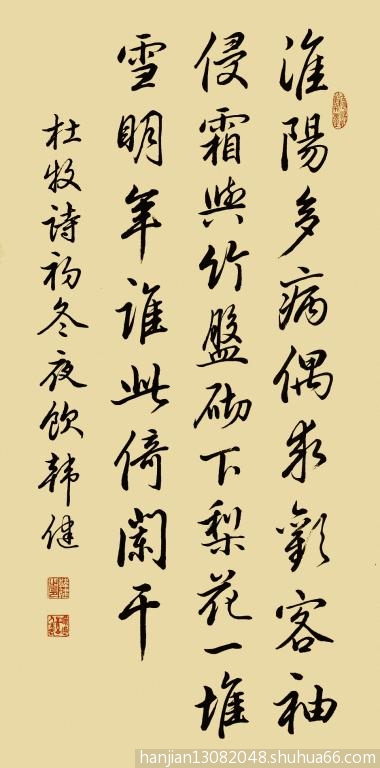 淮陽多病偶求歡客袖
侵霜與竹盤砌下梨花一堆
雪明年誰此倚闌干
杜牧詩初冬夜飲韩健
hanjian13082048.shuhua66.com